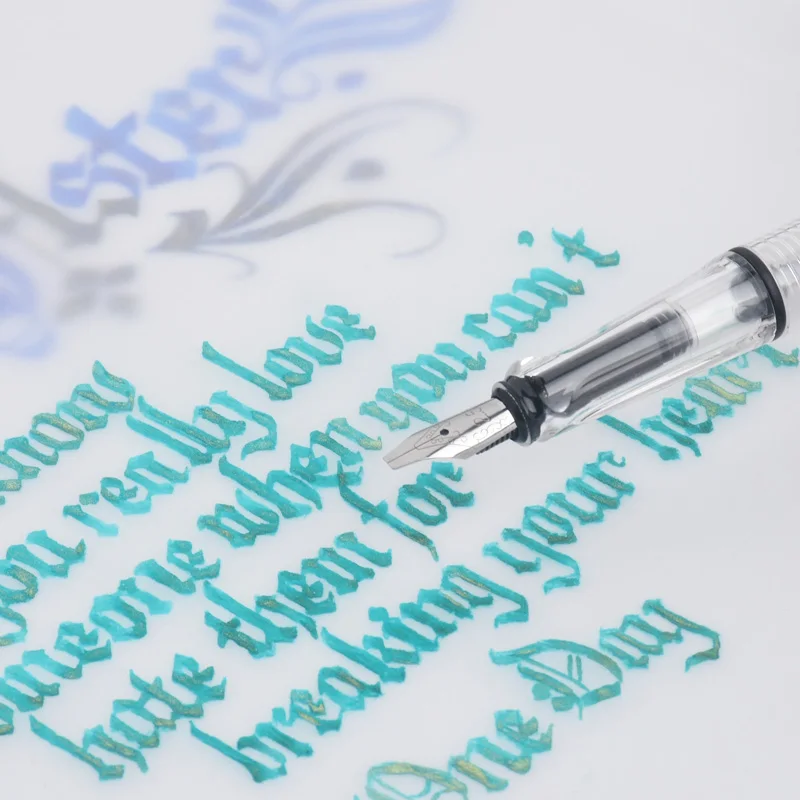 ster
you really love
someone when you can't
hate them for
breaking your heart
One Day